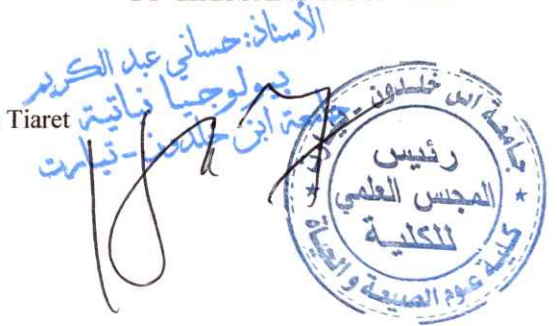 الأستاذ: حساني عبد الكريم
بيولوجيا نباتية
Tiaret
جامعة ابن خلدون - تيارت
جامعة ابن خلدون - تيارت
رئيس
المجلس العلمي
للكلية
كلية علوم الطبيعة و الحياة